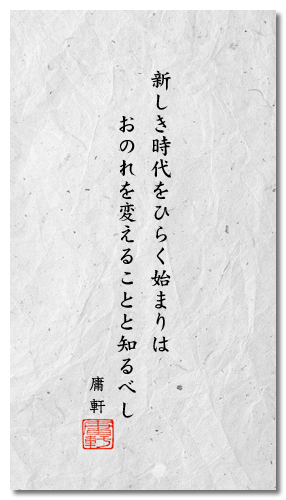 新しき時代をひらく始まりは
おのれを変えることと知るべし
庸軒